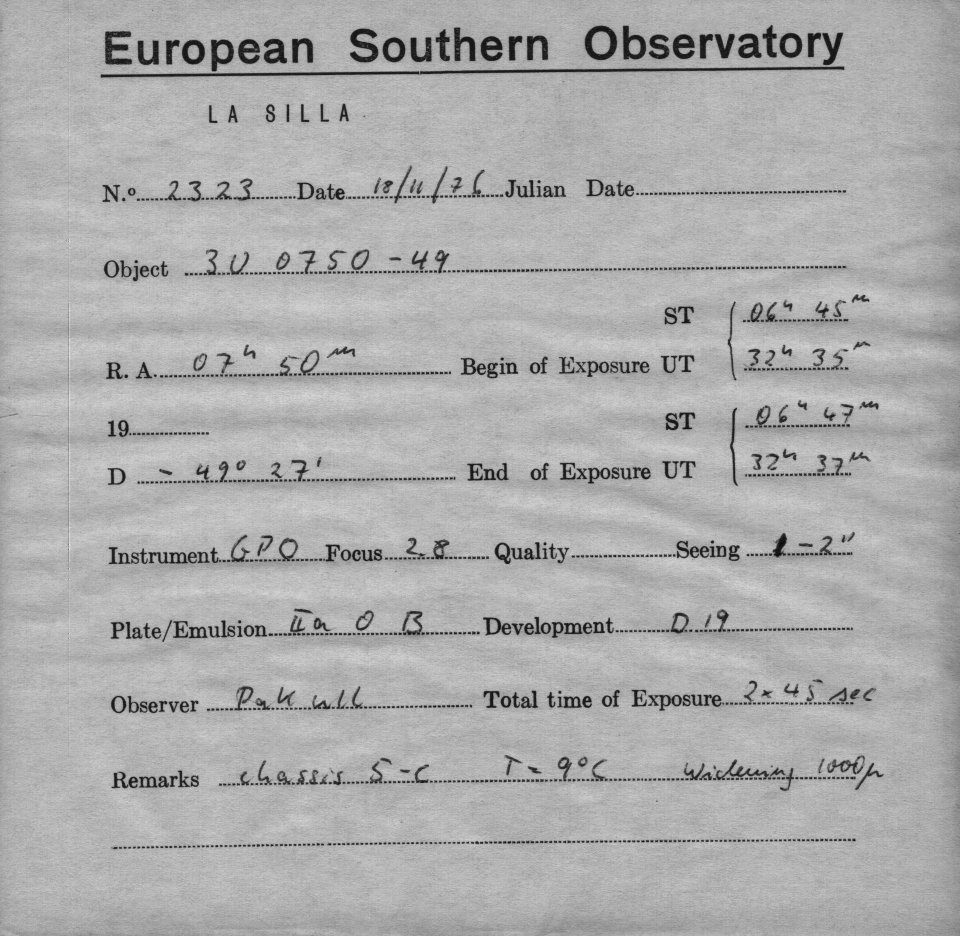 European Southern Observatory
LA SILLA
N.º 2323 Date 18/11/76 Julian Date
Object 3U 0750 -49
ST 06h 45m
R. A. 07h 50m Begin of Exposure UT 32h 35m
19 ST 06h 47m
D - 49° 27' End of Exposure UT 32h 37m
Instrument GPO Focus 2.8 Quality Seeing 1-2"
Plate/Emulsion IIa O B Development D 19
Observer Pakull Total time of Exposure 2x45 sec
Remarks chassis 5-C T = 9°C Widening 1000μ